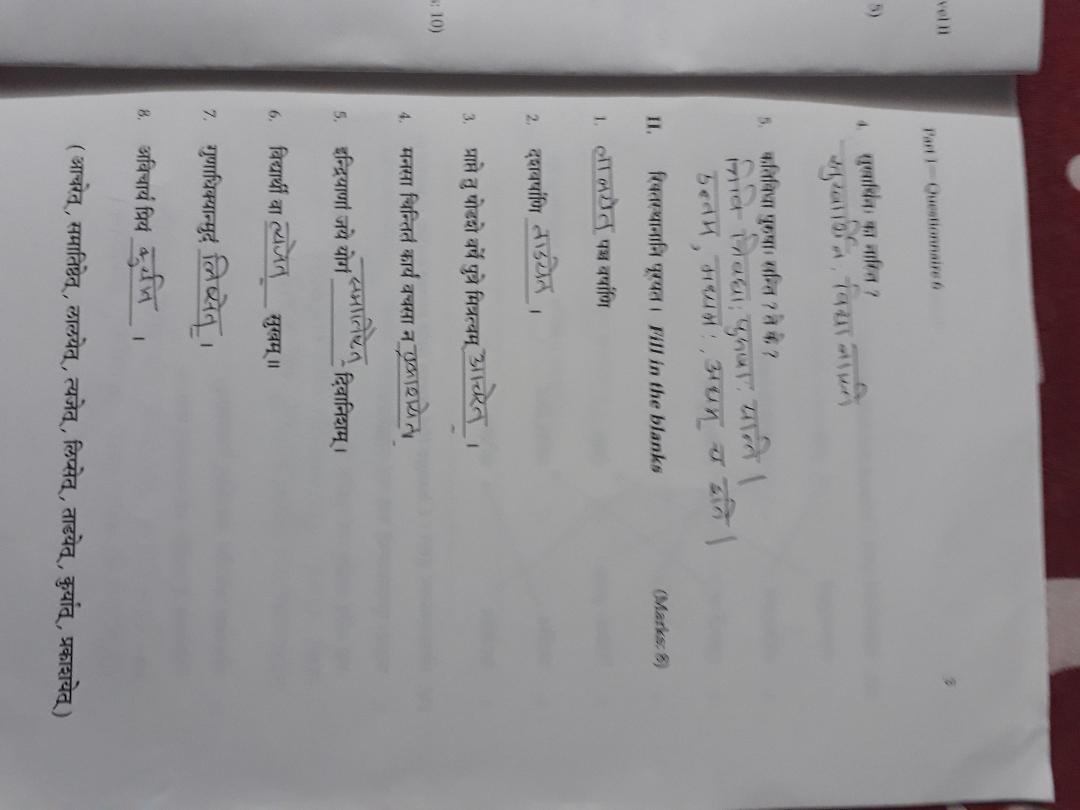 vel II
Part I – Questionnaire 6
3
5)
4. सुखार्थिनः का नास्ति ?
सुखार्शिन, विद्या नास्ति
5. कतिविधा पुरुषाः सन्ति ? ते के ?
त्रिवि त्रिवधाः पुरुषाः सान्ति |
उत्तम, मध्यमः, अधम् च इति |
II. रिक्तस्थानानि पूरयत। Fill in the blanks (Marks: 8)
1. लालयेत् पञ्च वर्षाणि
2. दशवर्षाणि ताडयेत ।
3. प्राप्ते तु षोडशे वर्षे पुत्रे मित्रत्वम् आचरेत् ।
s: 10)
4. मनसा चिन्तितं कार्यं वचसा न प्रकाशयेत्
5. इन्द्रियाणां जये योगं समातिष्टेत् दिवानिशम्।
6. विद्यार्थी वा त्यजेत् सुखम्॥
7. गुणाधिक्यान्मुदं लिप्सेत् ।
8. अविचार्य प्रियं कुर्यात ।
( आचरेत्, समातिष्ठेत्, लालयेत्, त्यजेत्, लिप्सेत्, ताडयेत्, कुर्यात्, प्रकाशयेत् )